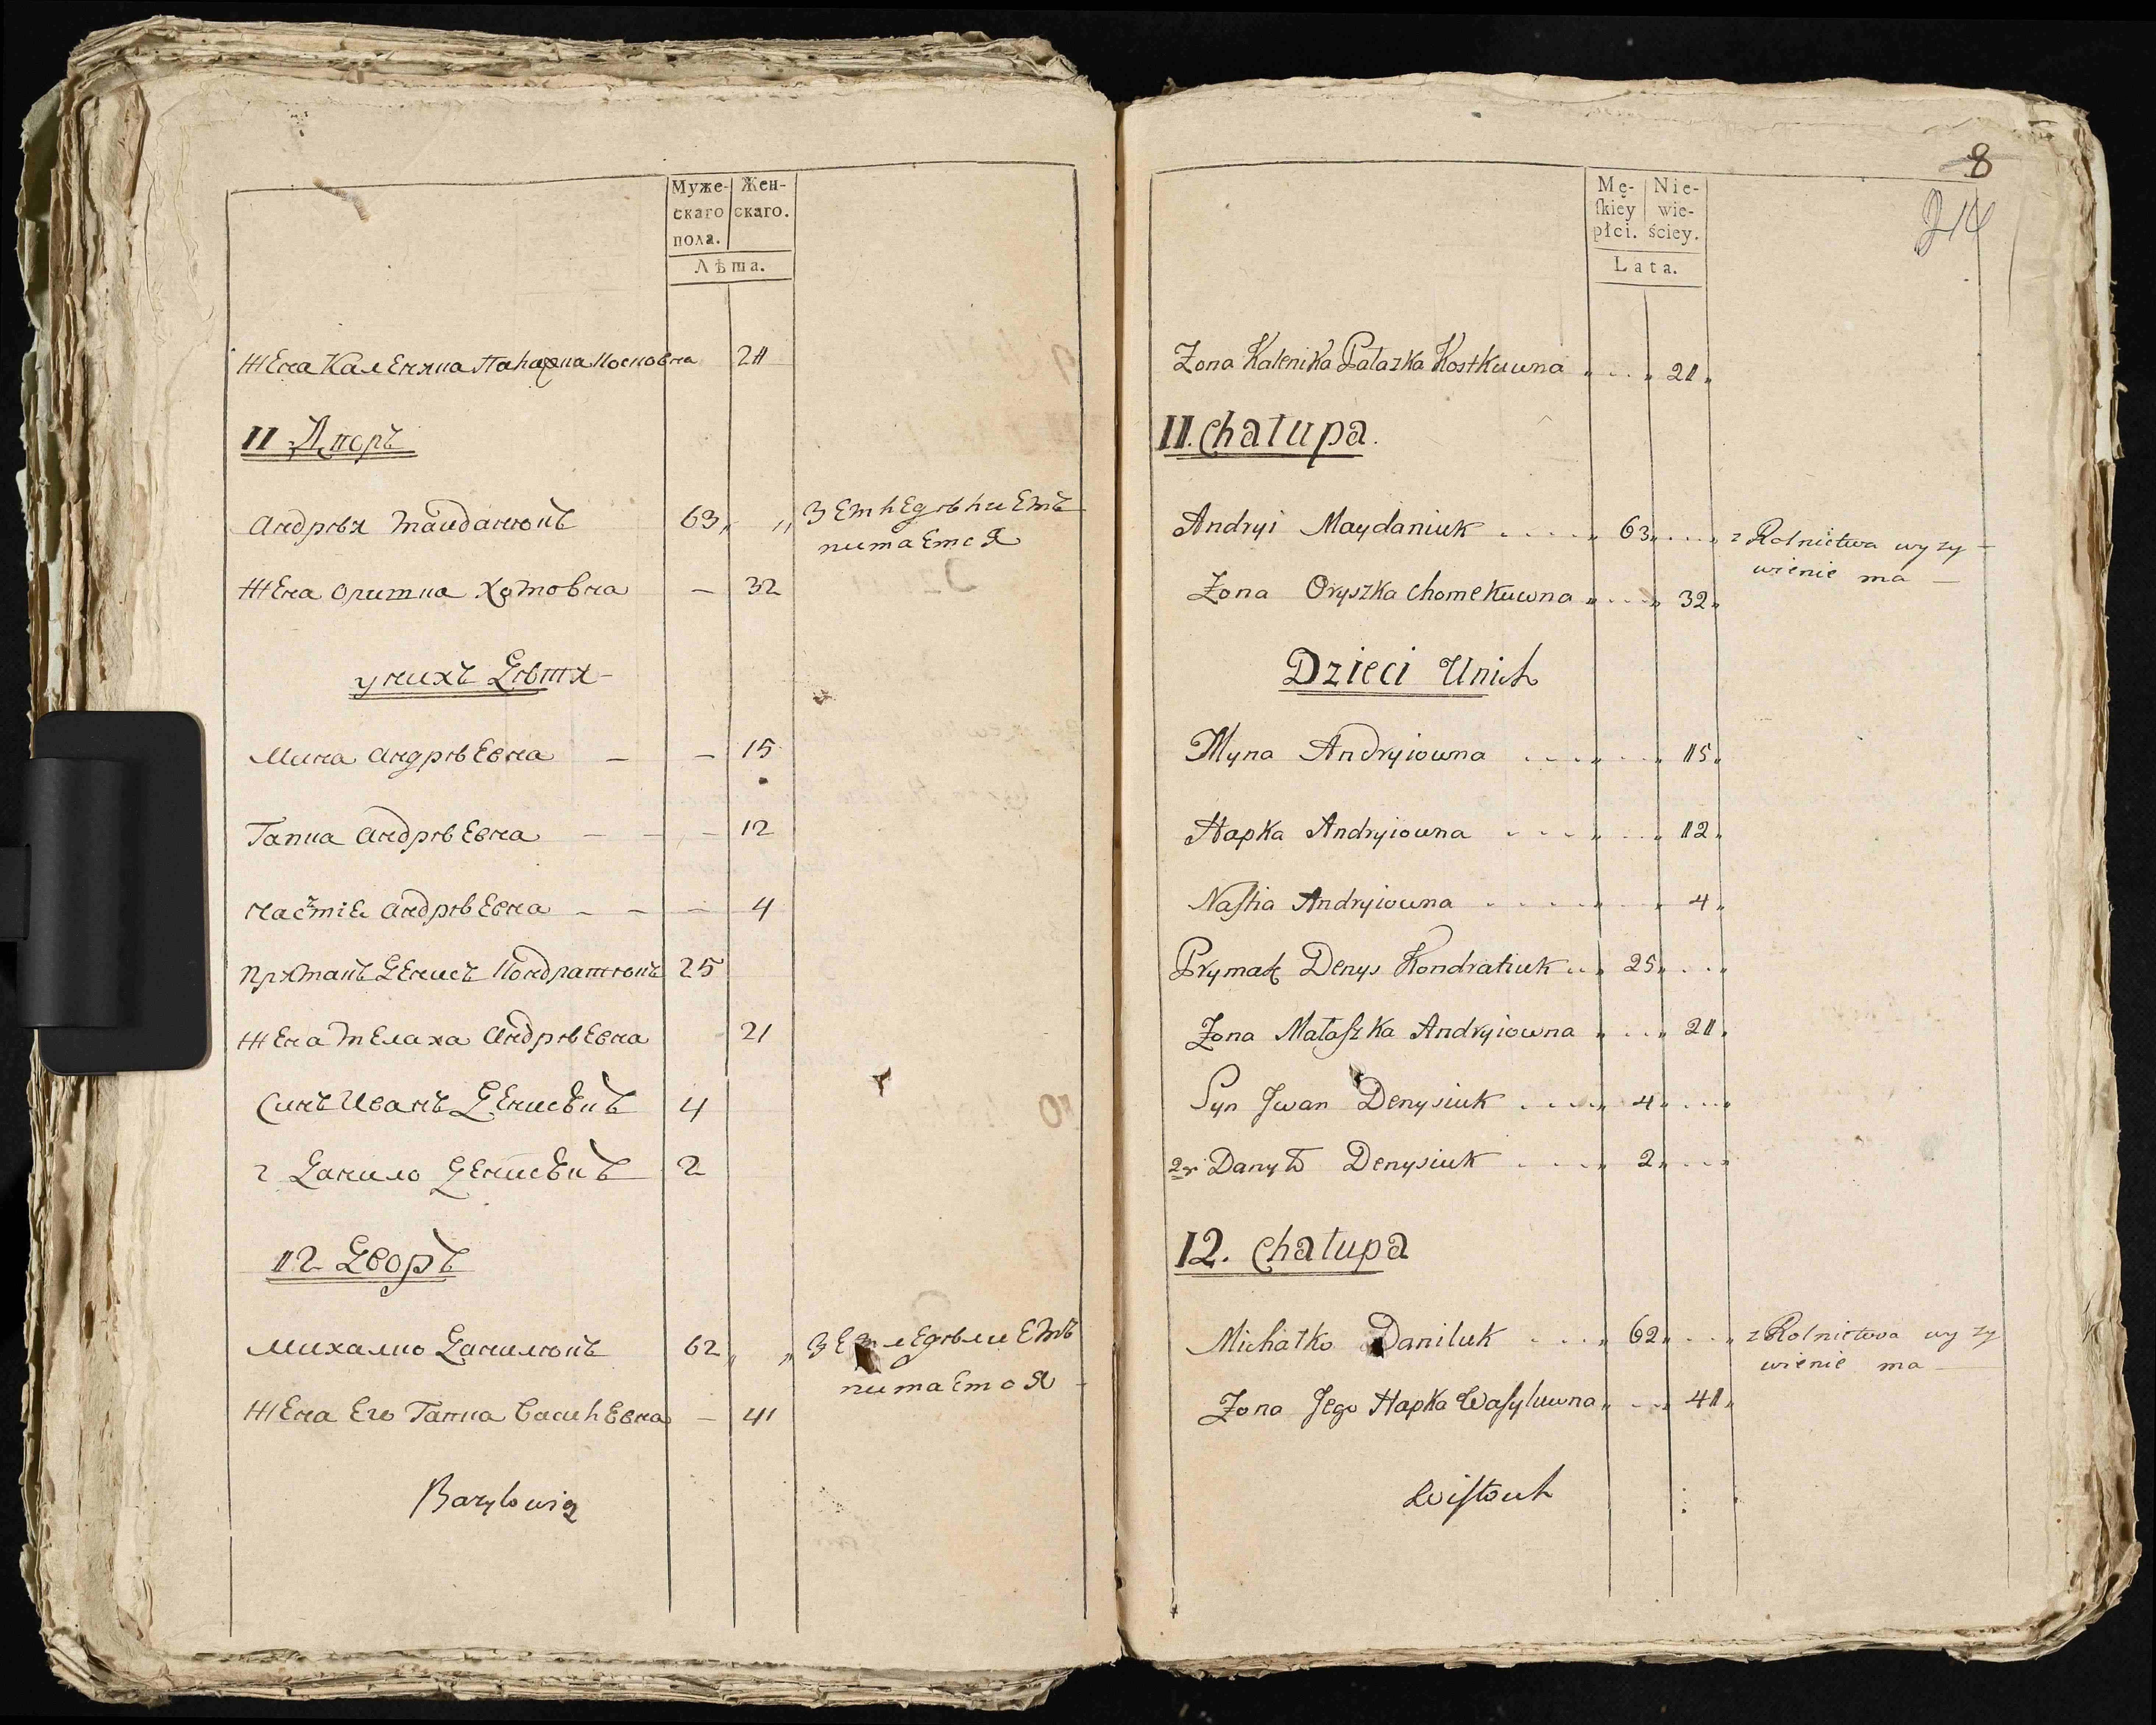 Муже-
скаго
пола.
Жен-
скаго.
Лѣта.
Жена Каленика Палажка Костковна 21
11 Дворъ
Андрѣй Майданюкъ 63 „ „ Земледѣлиемъ
питается
Жена Оришка Хомовна — 32
у нихъ Дѣти
Мина Андрѣевна — — 15
Гапка Андрѣевна — — — 12
Настіа Андрѣевна — — — 4
Приймакъ Денисъ Кондратюкъ 25
Жена Мелаха Андрѣевна 21
Синъ Иванъ Денисюкъ 4
2 Данило Денисюкъ 2
12 Дворъ
Михалко Данилюкъ 62 „ „ Земледѣлиемъ
питается
Жена Его Гапка Василевна — 41
8
214
Mę-
ſkiey
płci.
Nie-
wie-
ściey.
Lata.
Zona Kalenika Pałazka Kostkuwna „ . . „ 21 „
11. Chałupa.
Andryi Maydaniuk . . . . „ 63 „ . . . „ z Rolnictwa wyzy-
wienie ma —
Zona Oryszka Chomekuwna „ . . „ 32 „
Dzieci Unich
Myna Andryiowna . . . „ . . „ 15 „
Hapka Andryiowna . . . „ . . „ 12 „
Naſtia Andryiowna . . . . „ . . „ 4 „
Prymak Denys Kondratiuk . . „ 25 „ . . „
Zona Małaſzka Andryiowna „ . . „ 21 „
Syn Jwan Denysiuk . . . „ 4 „ . . . „
2r Danyło Denysiuk . . . . „ 2 „ . . . „
12. Chałupa
Michałko Daniluk . . . „ 62 „ . . . „ z Rolnictwa wyzy
wienie ma —
Zona Jego Hapka Waſyluwna „ . . „ 41 „